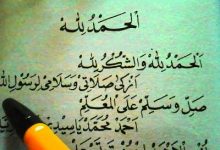 اَلْحَمْدُ لِلّٰهِ
اَلْحَمْدُ لِلّٰهِ وَالشُّكْرُ لِلّٰهِ
اَزْكَى صَلَاتِى وَسَلَامِى لِرَسُولِ اللّٰه
صَلِّ وَسَلِّمْ عَلَى الْمُعَلِّمْ
اَحْمَدْ مُحَمَّدْ يَاسَيِّدْ